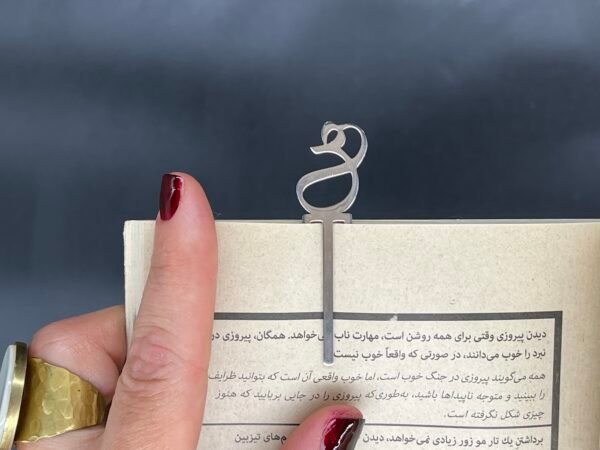 دیدن پیروزی وقتی برای همه روشن است، مهارت ناب نمی‌خواهد. همگان، پیروزی در
نبرد را خوب می‌دانند، در صورتی که واقعاً خوب نیست
همه می‌گویند پیروزی در جنگ خوب است، اما خوب واقعی آن است که بتوانید ظرایف
را ببینید و متوجه ناپیداها باشید، به‌طوری‌که پیروزی را در جایی بربایید که هنوز
چیزی شکل نگرفته است.
برداشتن یك تار مو زور زیادی نمی‌خواهد، دیدن م‌های تیزبین